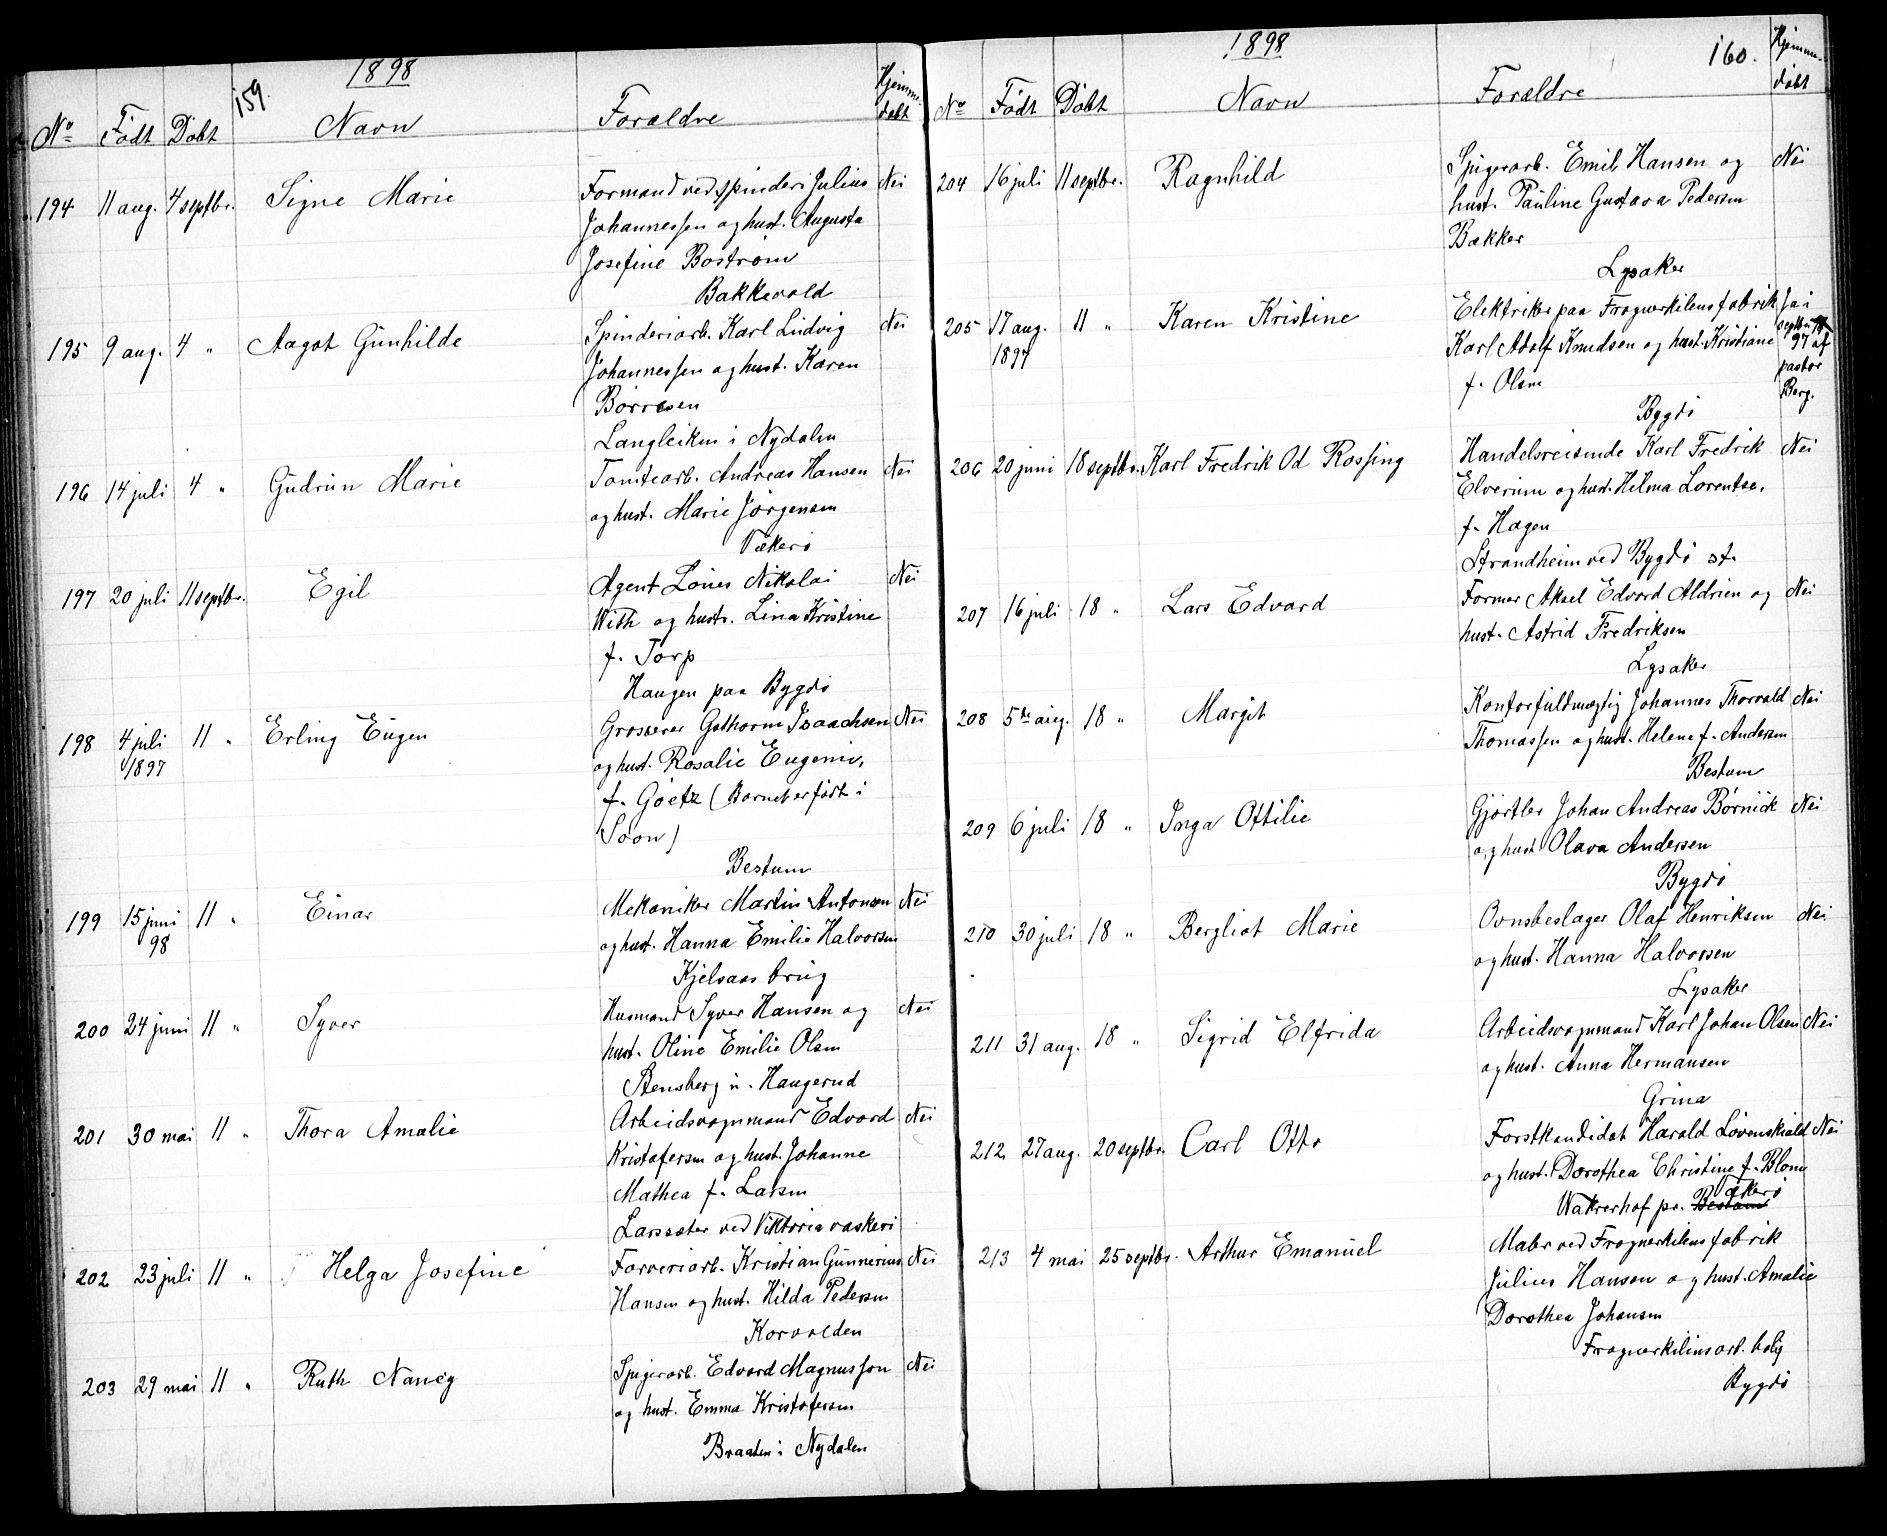 1898
159.
No Født Døbt Navn Forældre Hjemme-
døbt
194 11 aug. 4 septbr. Signe Marie Formand ved spinderi Julius Nei
Johannessen og hust. Augusta
Josefine Bostrøm
Bakkevold
195 9 aug. 4 " Aagot Gunhilde Spinderiarb. Karl Ludvig Nei
Johannessen og hust. Karen
Børresen
Langleiken i Nydalen
196 14 juli 4 " Gudrun Marie Tomtearb. Andreas Hansen Nei
og hust. Marie Jørgensen
Vækerø
197 20 juli 11 septbr. Egil Agent Nikolai Nei
With og hustr. Lina Kristine
f. Torp
Haugen paa Bygdø
198 4 juli 11 " Erling Eugen Grosserer Gothorm Isaachsen Nei
1897 og hust. Rosalie Eugenie,
f. Goetz (Barnet er født i
Soon)
Bestum
199 15 juni 11 " Einar Mekaniker Martin Antonsen Nei
98 og hust. Hanna Emilie Halvorsen
Kjelsaas brug
200 24 juni 11 " Syver Husmand Syver Hansen og Nei
hust. Oline Emilie Olsen
Stensberg u. Haugerud
201 30 mai 11 " Thora Amalie Arbeidsvognmand Edvard Nei
Kristofersen og hust. Johanne
Mathea f. Larsen
Larssæter ved Viktoria vaskeri
202 23 juli 11 " Helga Josefine Farveriarb. Kristian Gunnerius Nei
Hansen og hust. Hilda Pedersen
Korvolden
203 29 mai 11 " Ruth Nancy Spigerarb. Edvard Magnusson Nei
og hust. Emma Kristofersen
Braaten i Nydalen
1898
160.
No Født Døbt Navn Forældre Hjemme-
døbt
204 16 juli 11 septbr. Ragnhild Spigerarb. Emil Hansen og Nei
hust. Pauline Gustava Pedersen
Bakker
Lysaker
205 17 aug. 11 " Karen Kristine Elektriker paa Frognerkilens fabrik Ja i
1897 Karl Adolf Knudsen og hust. Kristiane septbr 97 af
f. Olsen pastor
Bygdø Berg.
206 20 juni 18 septbr. Karl Fredrik Od Rossing Handelsreisende Karl Fredrik Nei
Elverum og hust. Hilma Lorentse,
f. Hagen
Strandheim ved Bygdø st.
207 16 juli 18 " Lars Edvard Former Aksel Edvard Aldrien og Nei
hust. Astrid Fredriksen
Lysaker
208 5te aug. 18 " Margit Kontorfuldmægtig Johannes Thorvald Nei
Thomassen og hust. Helene f. Andersen
Bestum
209 6 juli 18 " Inga Ottilie Gjørtler Johan Andreas Børnick Nei
og hust Olava Andersen
Bygdø
210 30 juli 18 " Bergliot Marie Ovnsbeslager Olaf Henriksen Nei
og hust. Hanna Halvorsen
Lysaker
211 31 aug. 18 " Sigrid Elfrida Arbeidsvognmand Karl Johan Olsen Nei
og hust. Anna Hermansen
Grina
212 27 aug. 20 septbr. Carl Otto Forstkandidat Harald Løvenskiold Nei
og hust. Dorothea Christine f. Blom
Vækerø
Wækerhof pr. Bestum
213 4 mai 25 septbr. Arthur Emanuel Maler ved Frognerkilens fabrik
Julius Hansen og hust. Amalie
Dorothea Johansen
Frognerkilens arb. bolig
Bygdø